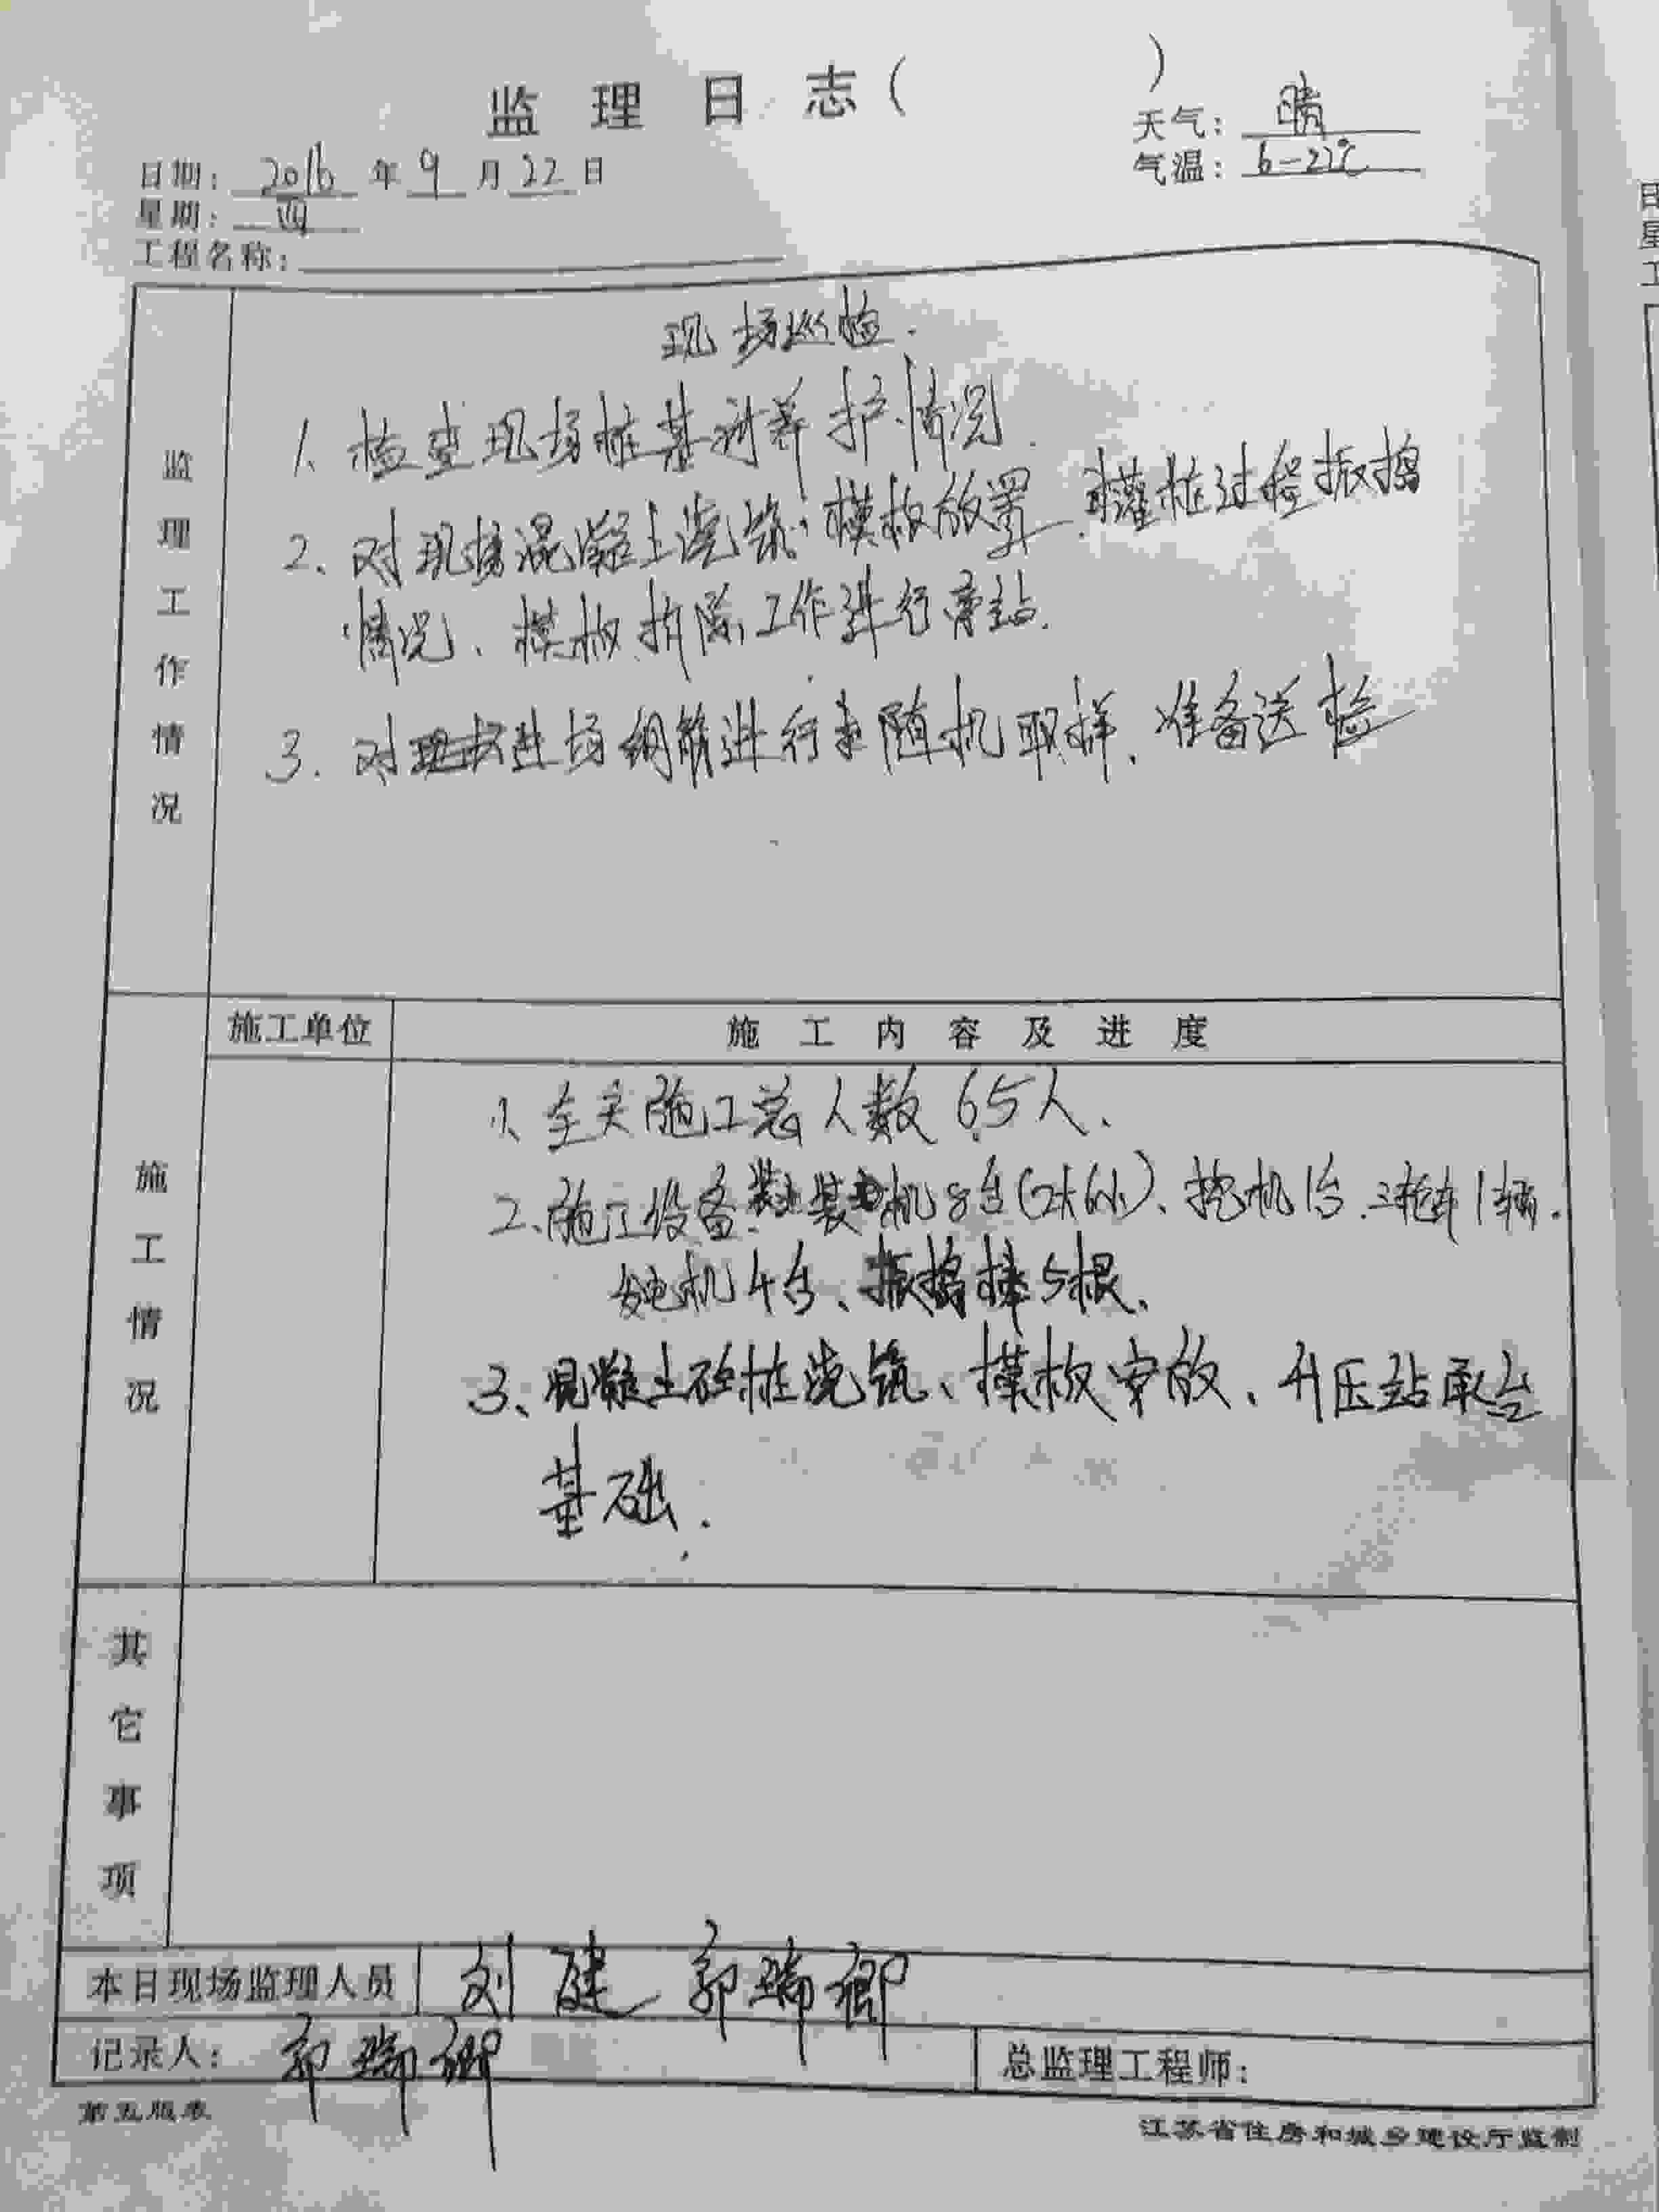 监理日志（　　　）
天气：晴
日期：2016年9月22日
气温：6-22℃
星期：四
工程名称：
监理工作情况
现场巡检.
1、检查现场桩基 养护情况.
2、对现场混凝土浇筑、模板放置、灌桩过程振捣
情况、模板拆除工作进行旁站.
3. 对 进场钢筋进行 随机取样、准备送检
施工单位
施工内容及进度
施工情况
1、 施工总人数65人、
2、施工设备: 机8台(2大6小)、挖机1台.三轮车1辆.
发电机4台、振捣棒5根、
3、混凝土砼桩浇筑、模板 放、升压站承台
基础.
其它事项
本日现场监理人员 刘建 郭瑞卿
记录人：郭瑞卿
总监理工程师：
第五版表
江苏省住房和城乡建设厅监制
日
星
工